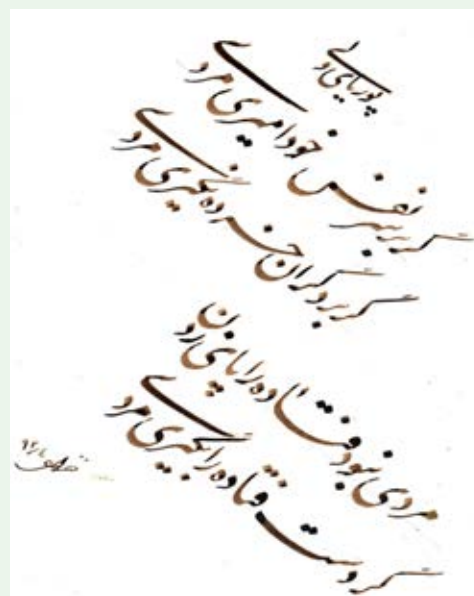 پوریای ولی
گر بر سر نفس خود امیری مردی
گر بر دگران خرده نگیری مردی
مردی نبود فتاده را پای زدن
گر دست فتاده را بگیری مردی